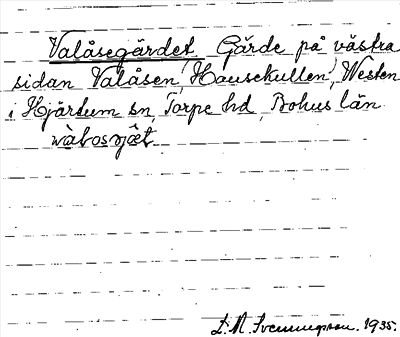 Valåsegärdet Gärde på västra
sidan Valåsen, Hausekullen, Westen
i Hjärtum sn, Torpe hd, Bohus län
L. M. Svenungsson. 1935.